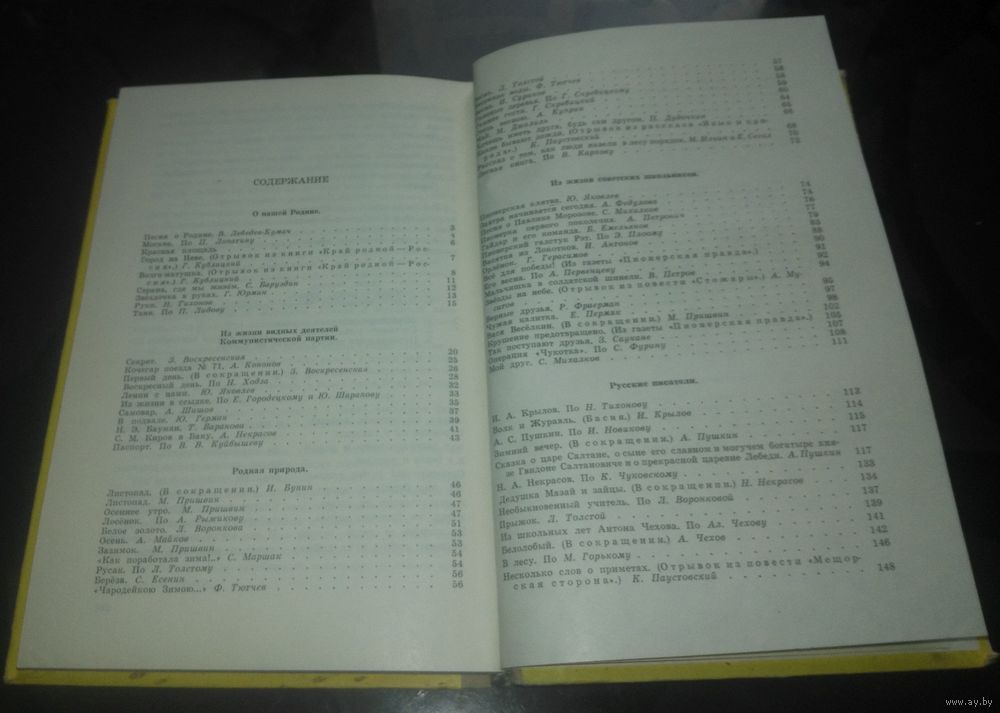 СОДЕРЖАНИЕ
О нашей Родине.
Песня о Родине. В. Лебедев-Кумач 3
Москва. По П. Лопатину 4
Красная площадь 6
Город на Неве. (Отрывок из книги «Край родной — Рос-
сия».) Г. Кублицкий 7
Волга-матушка. (Отрывок из книги «Край родной — Рос-
сия».) Г. Кублицкий 8
Страна, где мы живём. С. Баруздин 11
Звёздочка в руках. Г. Юрмин 12
Руки. Н. Тихонов 13
Таня. По П. Лидову 15
Из жизни видных деятелей
Коммунистической партии.
Секрет. З. Воскресенская 20
Кочегар поезда № 71. А. Кононов 25
Первый день. (В сокращении.) З. Воскресенская 26
Воскресный день. По Н. Ходза 28
Ленин с нами. Ю. Яковлев 32
Из жизни в ссылке. По Е. Городецкому и Ю. Шарапову 33
Самовар. А. Шишов 35
В подвале. Ю. Герман 37
Н. Э. Бауман. Т. Баранова 39
С. М. Киров в Баку. А. Некрасов 41
Паспорт. По В. В. Куйбышеву 43
Родная природа.
Листопад. (В сокращении.) И. Бунин 46
Листопад. М. Пришвин 46
Осеннее утро. М. Пришвин 47
Лосёнок. По А. Рыжикову 47
Белое золото. Л. Воронкова 51
Осень. А. Майков 53
Зазимок. М. Пришвин 53
«Как поработала зима!..» С. Маршак 54
Русак. По Л. Толстому 54
Берёза. С. Есенин 56
«Чародейкою Зимою...» Ф. Тютчев 56
Л. Толстой 57
воды. Ф. Тютчев 58
И. Суриков 59
деревья. По Г. Скребицкому 59
гости. Г. Скребицкий 60
весною. А. Куприн 64
М. Джалиль 65
иметь друга, будь сам другом. П. Дудочкин 66
бывают дожди. (Отрывок из рассказа «Язык и при-
рода».) К. Паустовский 68
Рассказ о том, как люди навели в лесу порядок. М. Ильин и Е. Сегал 70
книга. По В. Карпову 73
Из жизни советских школьников.
Пионерская клятва. Ю. Яковлев 74
Завтра начинается сегодня. А. Федулова 74
Песня о Павлике Морозове. С. Михалков 76
Пионерка первого поколения. А. Петрович 77
Гайдар и его команда. Б. Емельянов 79
Пионерский галстук Рэт. По Э. Пашову 85
Васятка из Локотков. И. Антонов 88
Орлёнок. Г. Герасимов 90
Всё для победы! (Из газеты «Пионерская правда».) 91
Его весна. По А. Первенцеву 92
Мальчишка в солдатской шинели. В. Петров 94
Звёзды на небе. (Отрывок из повести «Стожары».) А. Му-
сатов 95
Верные друзья. Р. Фраерман 97
Чужая калитка. Е. Пермяк 98
Вася Весёлкин. (В сокращении.) М. Пришвин 102
Крушение предотвращено. (Из газеты «Пионерская правда».) 105
Так поступают друзья. З. 107
Операция «Чукотка». По С. Фурину 108
Мой друг. С. Михалков 111
Русские писатели.
И. А. Крылов. По Н. Тихонову 113
Волк и Журавль. (Басня.) И. Крылов 114
А. С. Пушкин. По И. Новикову 115
Зимний вечер. (В сокращении.) А. Пушкин 117
Сказка о царе Салтане, о сыне его славном и могучем богатыре кня-
зе Гвидоне Салтановиче и о прекрасной царевне Лебеди. А. Пушкин 117
Н. А. Некрасов. По К. Чуковскому 133
Дедушка Мазай и зайцы. (В сокращении.) Н. Некрасов 134
Необыкновенный учитель. По Л. Воронковой 137
Прыжок. Л. Толстой 139
Из школьных лет Антона Чехова. По Ал. Чехову 141
Белолобый. (В сокращении.) А. Чехов 142
В лесу. По М. Горькому 146
Несколько слов о приметах. (Отрывок из повести «Мещор-
ская сторона».) К. Паустовский 148
www.ay.by